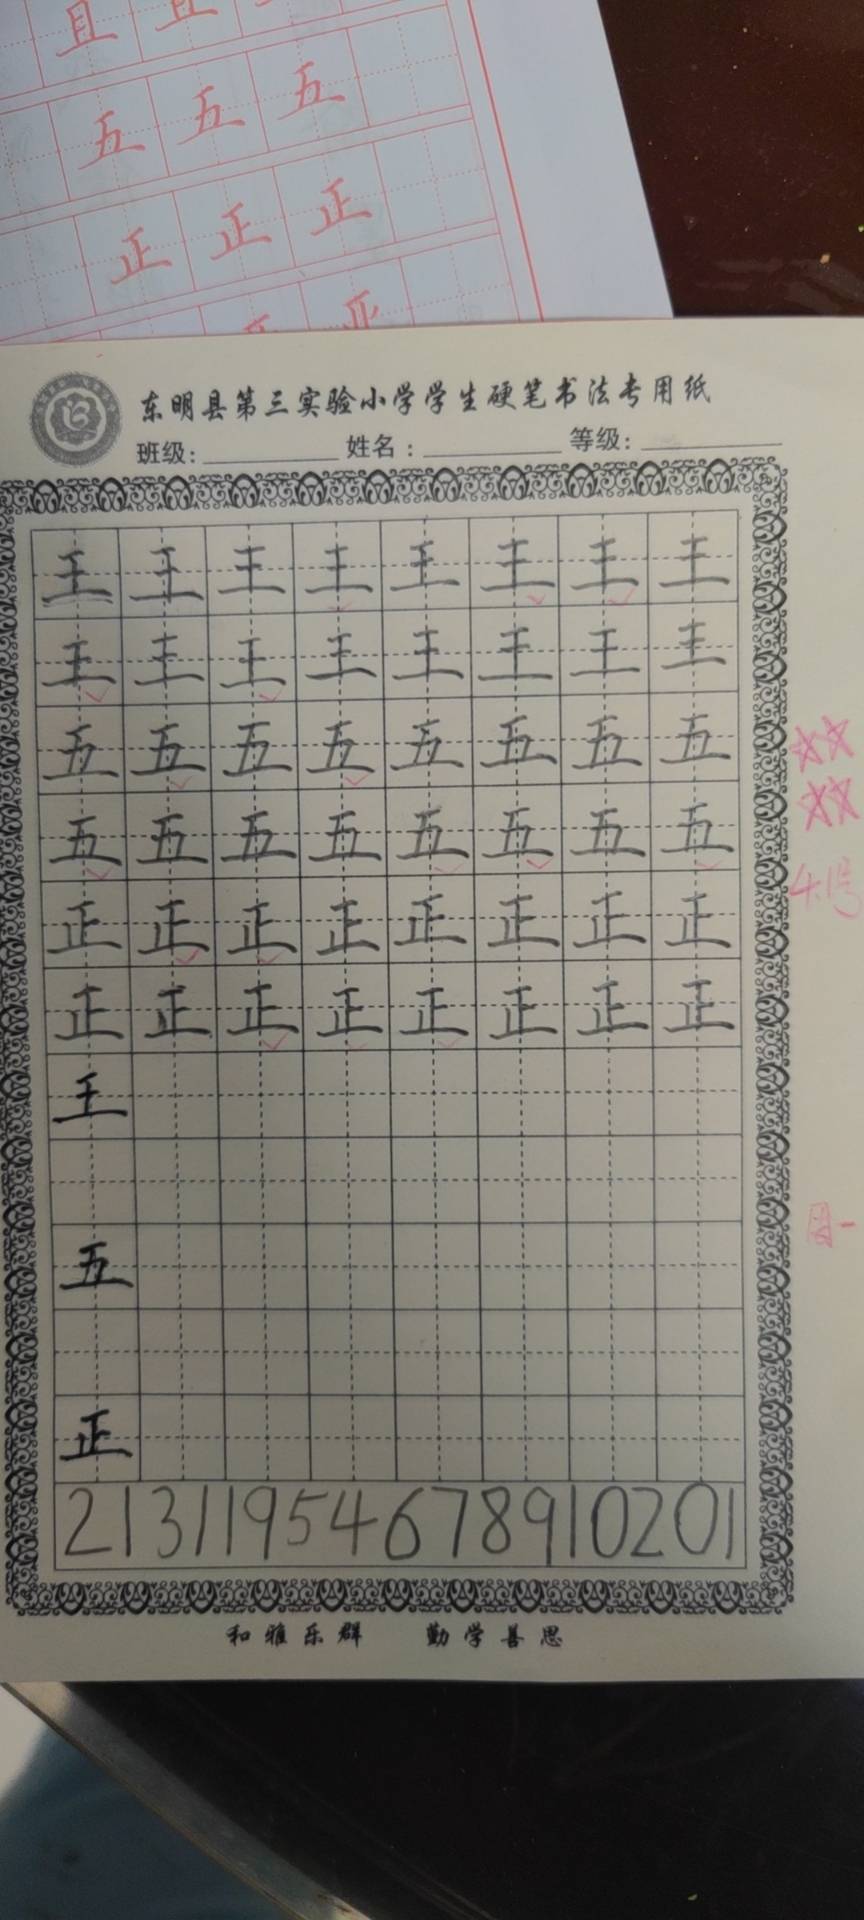 且 且
五 五 五
正 正 正
东明县第三实验小学学生硬笔书法专用纸
班级: 姓名: 等级:
王 王 王 王 王 王 王 王
王 王 王 王 王 王 王 王
五 五 五 五 五 五 五 五
五 五 五 五 五 五 五 五
正 正 正 正 正 正 正 正
正 正 正 正 正 正 正 正
4.1号
王
五
正
21311954678910201
和雅乐群 勤学善思